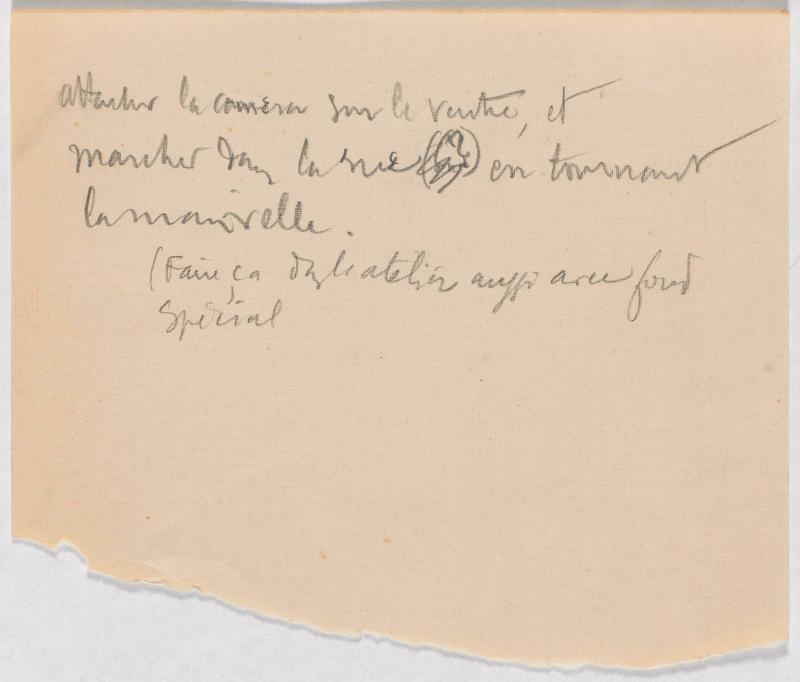 attacher la camera sur le ventre, et
marcher dans la rue en tournant
la manivelle.
(Faire ça ds l'atelier aussi avec fond
spécial